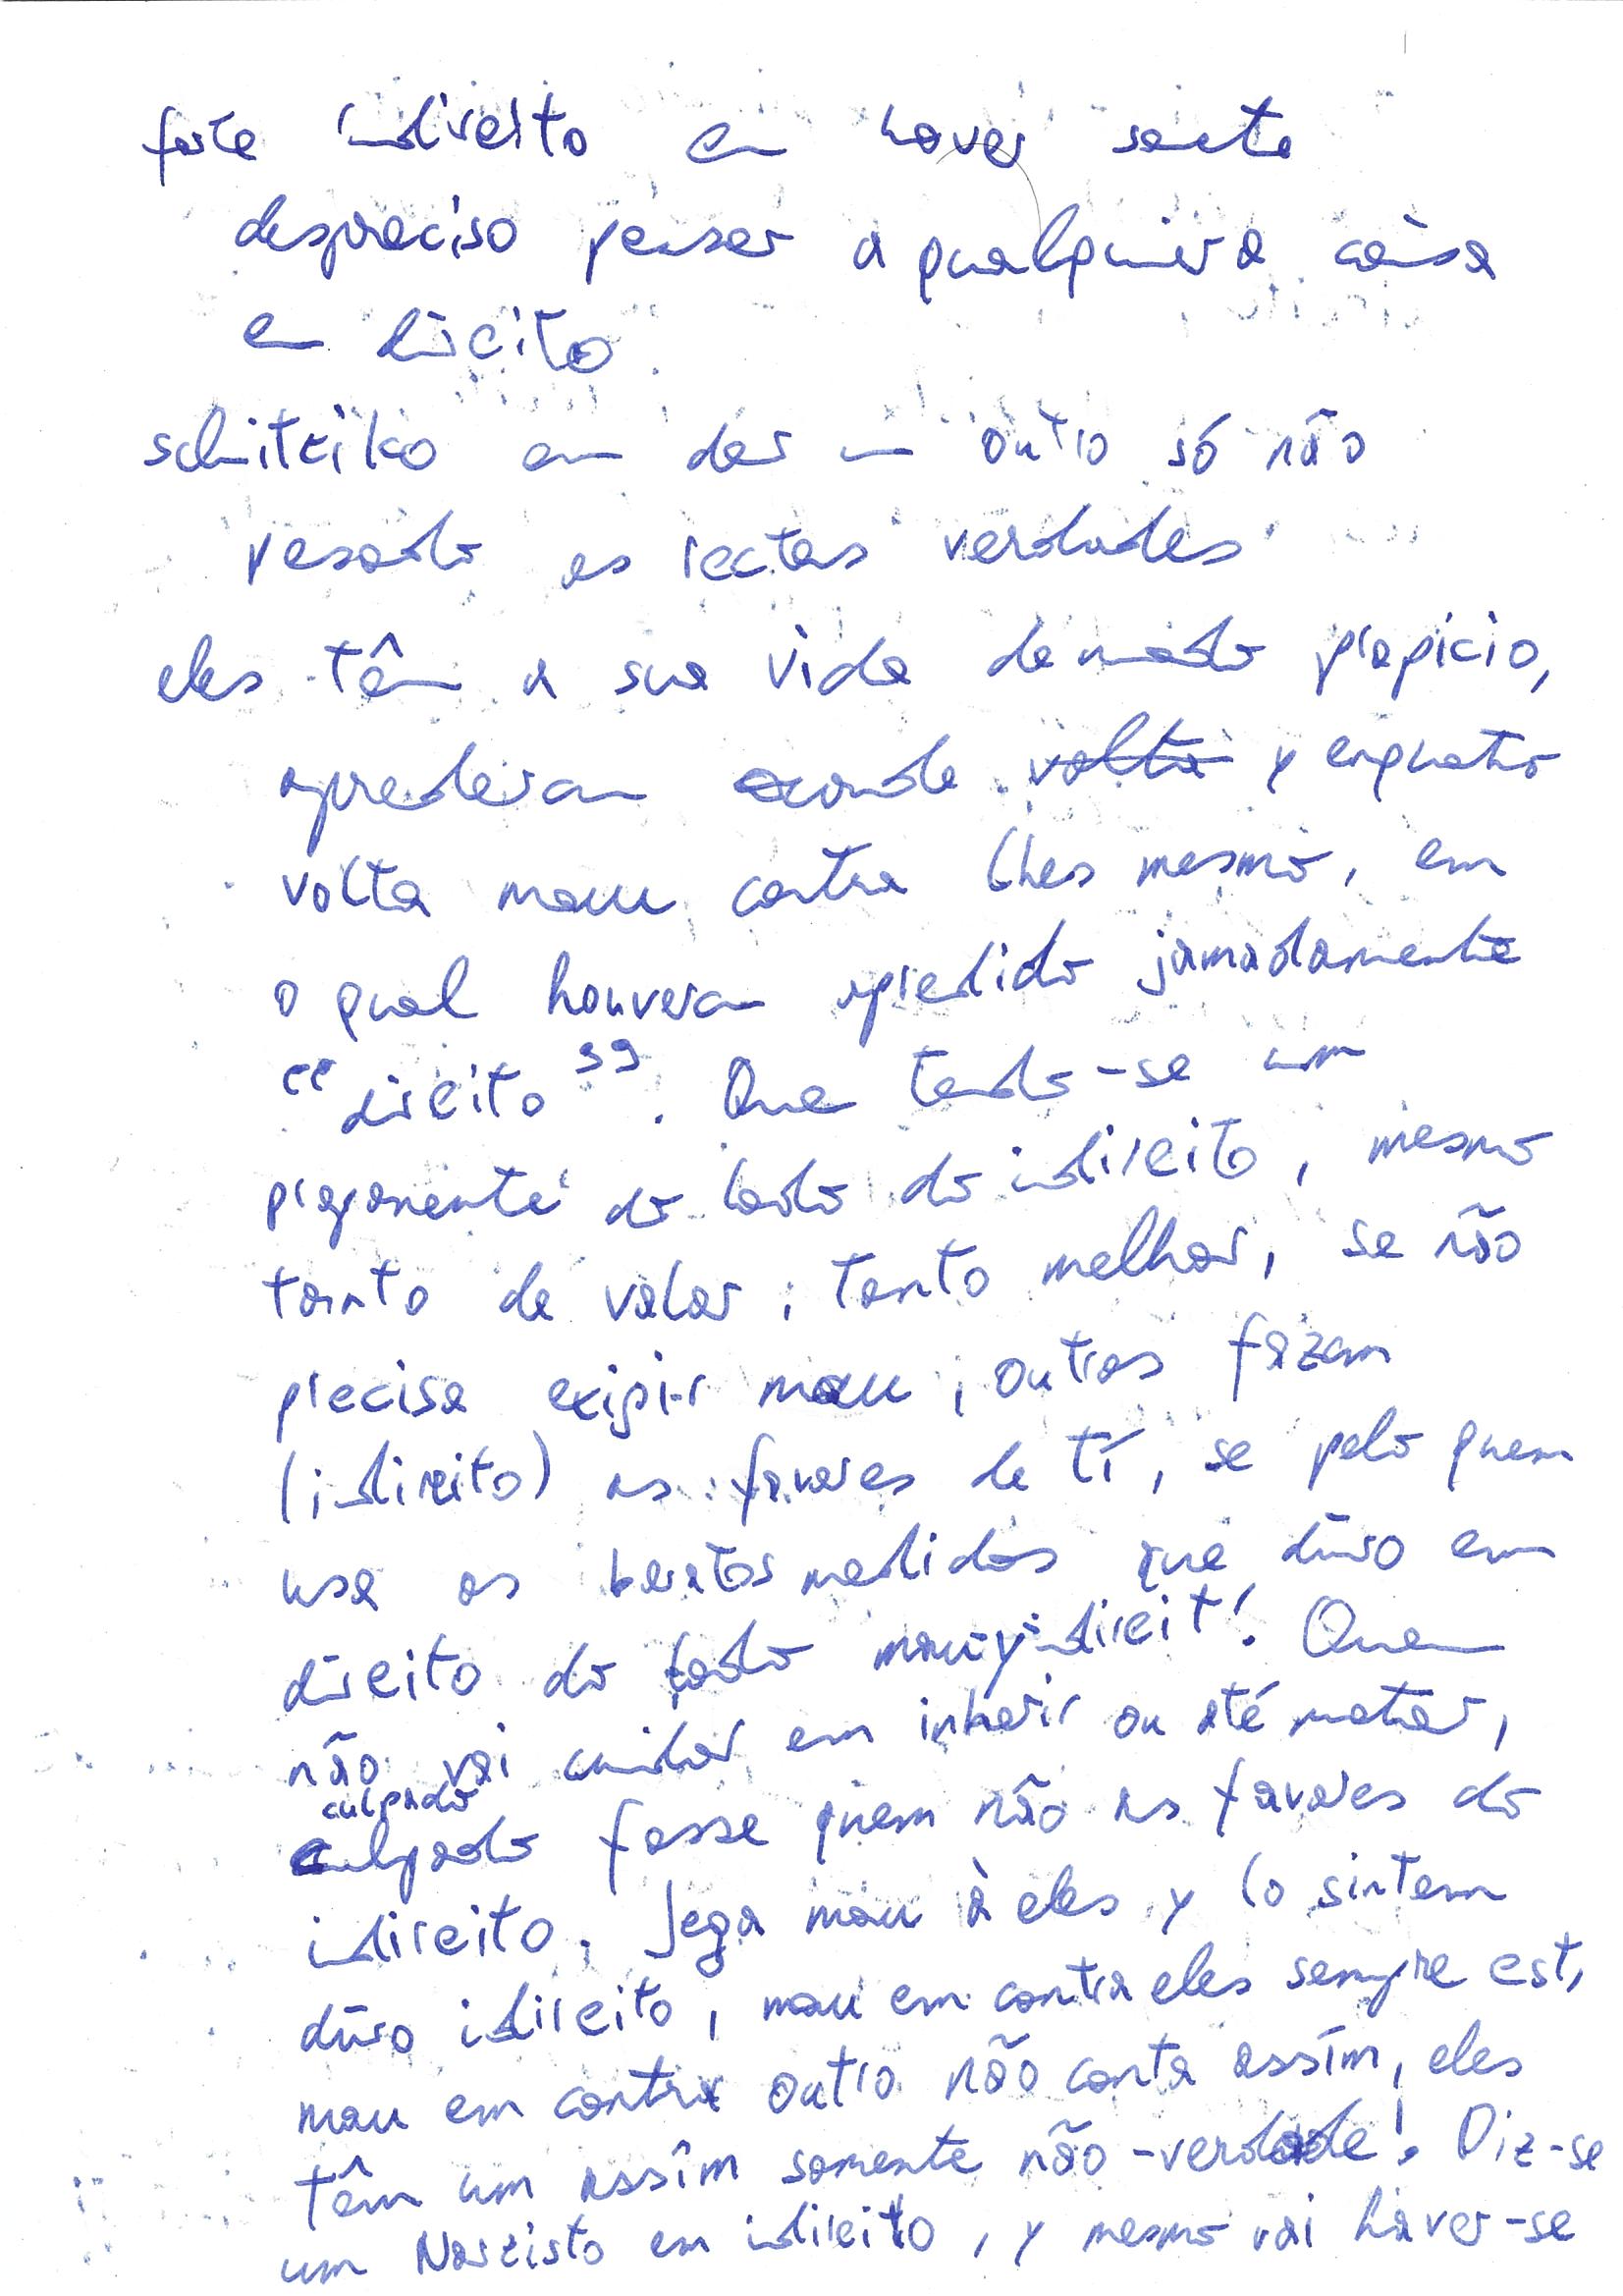 forte indireito em haver sente
despreciso penser a qualquiera cáisa
em direito
em dar um outro só não
pesado as rectas verdades.
eles têm a sua vida de modo propicio,
aprenderam aconde volta y enquatro
volta mau contra lhes mesmo, em
o qual houveram aprendido jamadamente
"direito". Que tendo-se um
proponente do lado do indireito, mesmo
tanto de valor; tanto melhor, se não
precisa exigir mau, outros fazam
(indireito) as favores de tí, se pelo quem
usa as medidas que dúro em
direito do lado mau-y-indireit! Quem
não vai cuidar em inherir ou até matar,
culpado
culpado fosse quem não as favores do
indireito. Jega mau à eles y lo sintem
dúro indireito, mau em contra eles sempre est,
mau em contra outro não conta assím, eles
têm um assîm somente não-verdade! Diz-se
um Narzisto em indireito, y mesmo vai haver-se